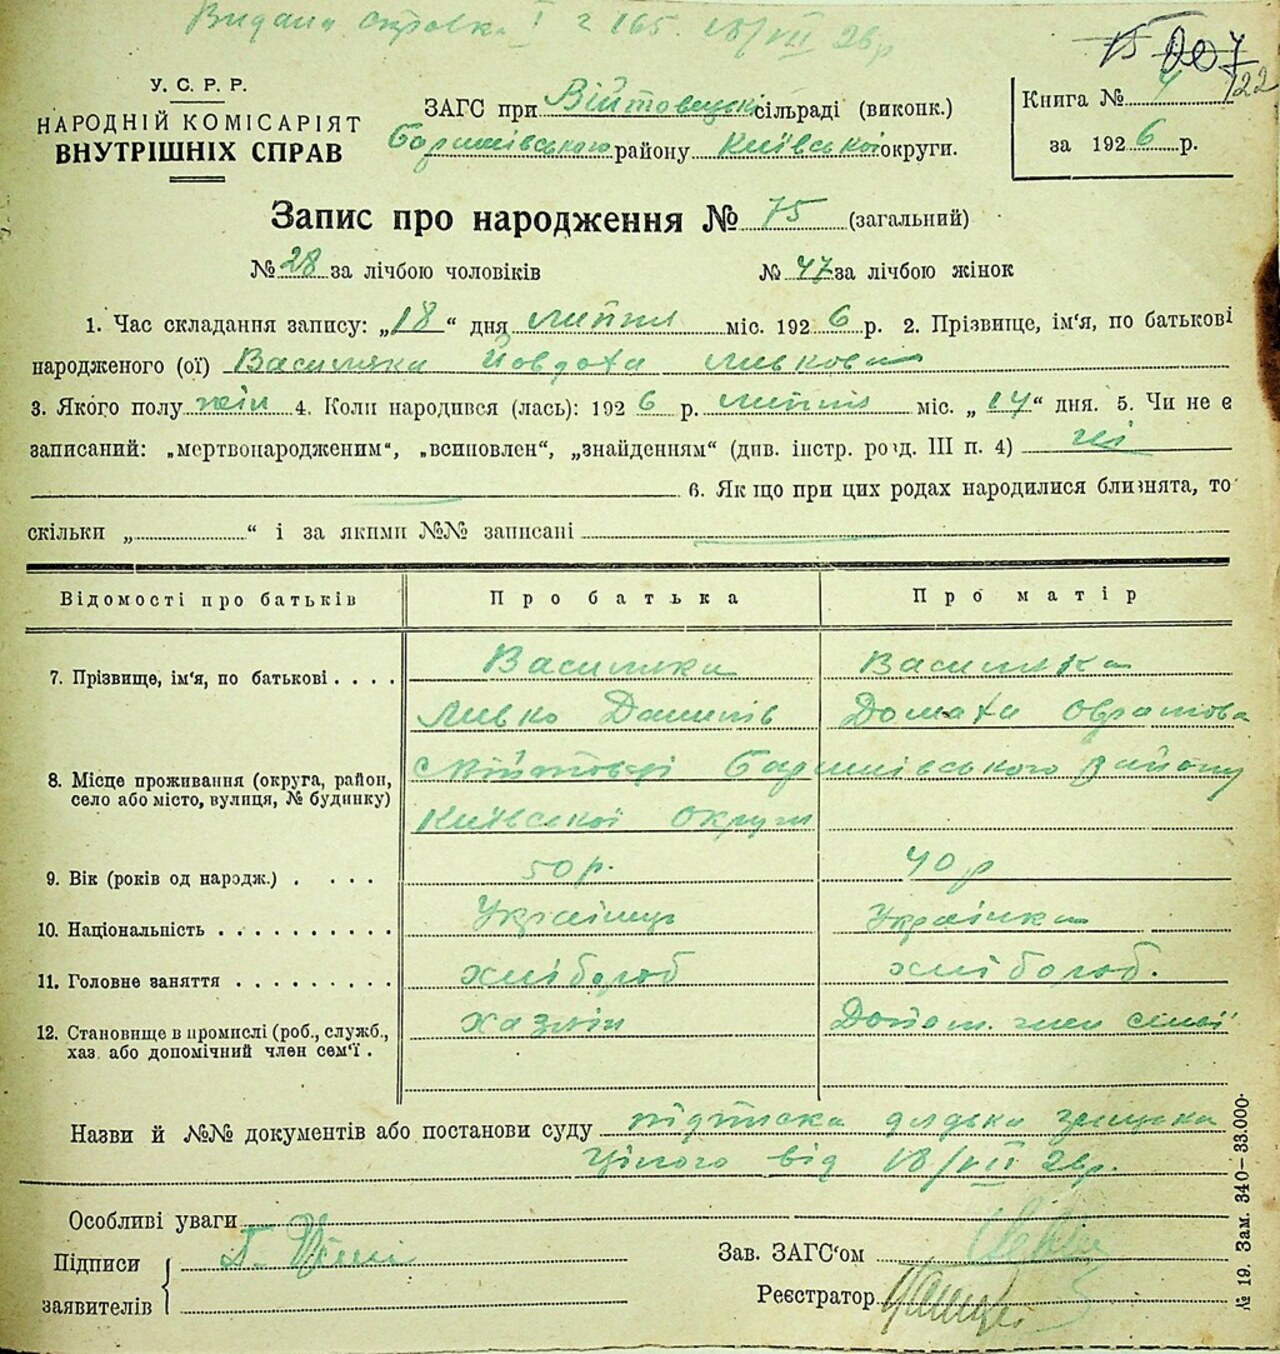 Видана справка І г 165. 18/VII 26р
15 007
122
У. С. Р. Р.
НАРОДНІЙ КОМІСАРІЯТ
ВНУТРІШНІХ СПРАВ
ЗАГС при Війтовецькі сільраді (виконк.)
Баришівського району Київської округи.
Книга № 4
за 1926 р.
Запис про народження № 75 (загальний)
№ 28 за лічбою чоловіків № 47 за лічбою жінок
1. Час складання запису: „18“ дня липня міс. 1926 р. 2. Прізвище, ім‘я, по батькові
народженого (ої) Василяка ЙовдохаЛивкова
3. Якого полу жін 4. Коли народився (лась): 1926 р. липня міс. „14“ дня. 5. Чи не є
записаний: „мертвонародженим“, „всиновлен“, „знайденням“ (див. інстр. розд. III п. 4) ні
6. Якщо при цих родах народилися близнята, то
скільки „ “ і за якими №№ записані
Відомості про батьків Про батька Про матір
7. Прізвище, ім‘я, по батькові . . . . Василяка Василяка
Ливко Данилів Домаха
8. Місце проживання (округа, район, с Війтовці Баришівського Району
село або місто, вулиця, № будинку)
Київської Округи
9. Вік (років од народж.) . . . . 50 р. 40 р
10. Національність . . . . . . . . . . Українць Українка
11. Головне заняття . . . . . . . . . хлібороб хлібороб.
12. Становище в промислі (роб., служб., Хазяін Допом. член сімї
хаз. або допомічний член сем‘ї .
Назви й №№ документів або постанови суду підписка дядька
від 18/VII 26р.
Особливі уваги
Підписи Г.
заявителів
Зав. ЗАГС‘ом
Реєстратор
№ 19. Зам. 340–33.000·